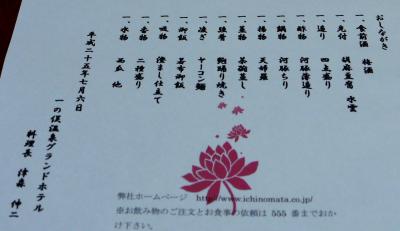 おしながき
一、食前酒　梅酒
一、先付　胡麻豆腐　水雲
一、造り　四点盛り
一、酢物　河豚薄造り
一、鍋物　河豚ちり
一、揚物　天婦羅
一、蒸物　茶碗蒸し
一、強肴　鮑踊り焼き
一、凌ぎ　ヤーコン麺
一、御飯　若布御飯
一、吸物　澄まし仕立て
一、香物　二種盛り
一、水物　西瓜　他
平成二十五年七月六日
一の俣温泉グランドホテル
料理長　伸二
弊社ホームページ　http://www.ichinomata.co.jp/
※お飲み物のご注文とお食事の依頼は 555 番までおか
け下さい。